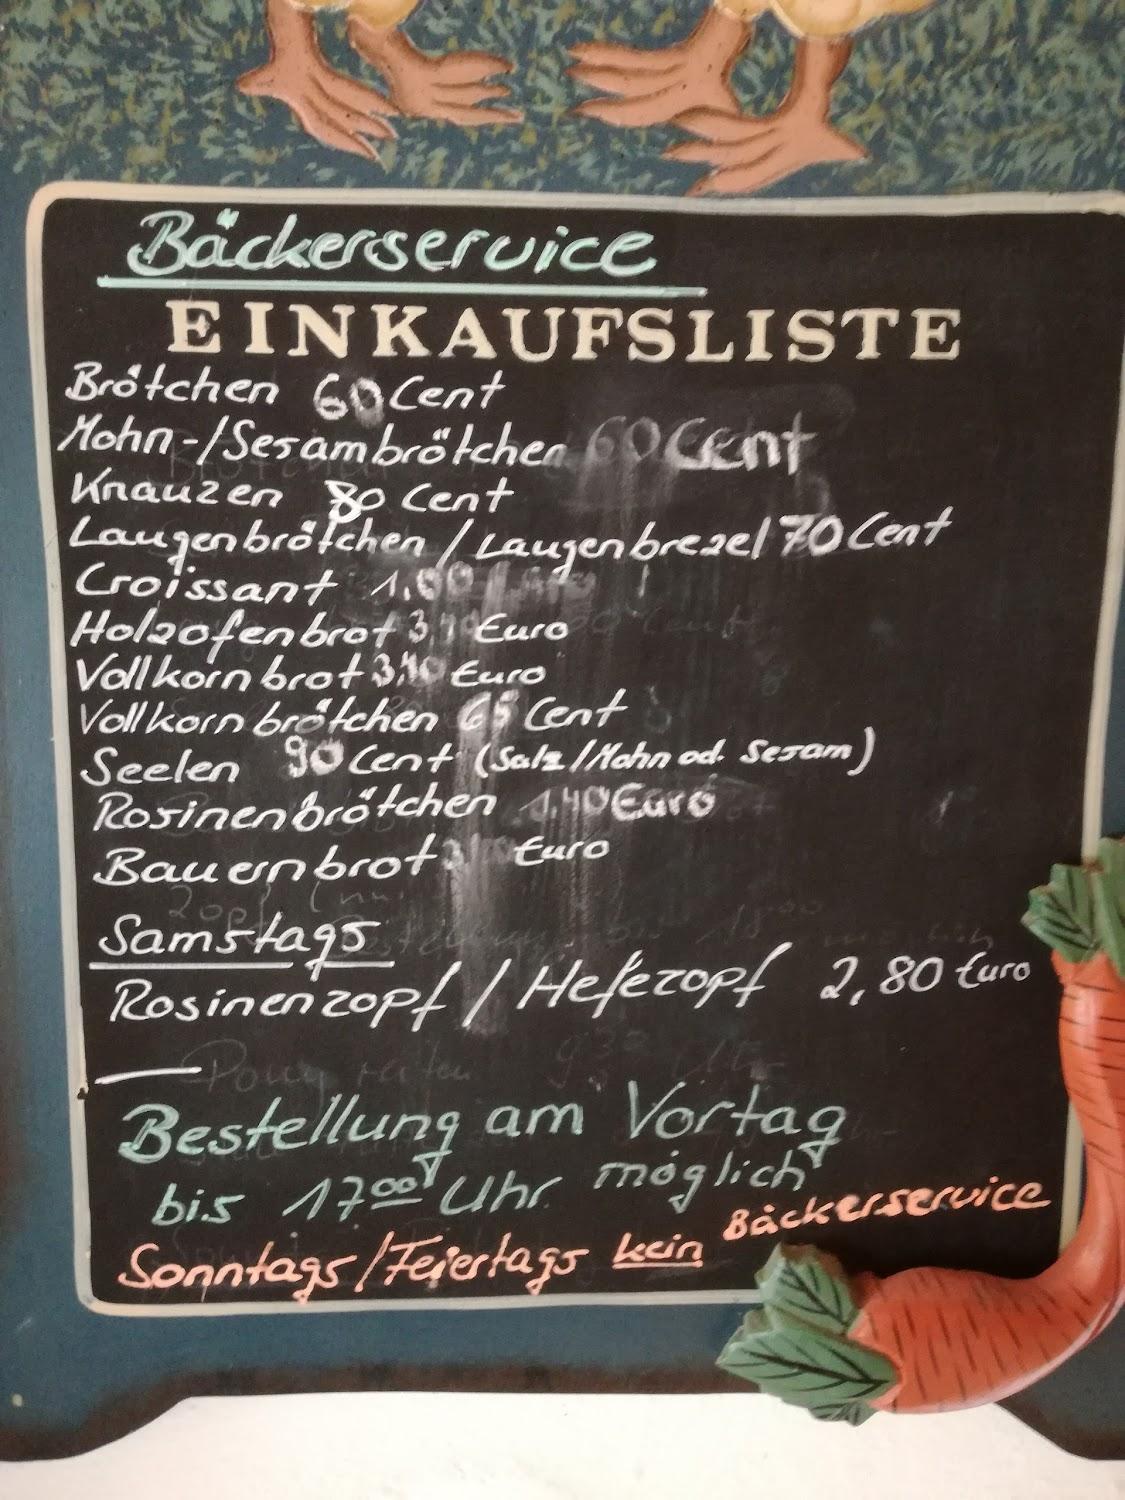 Bäckerservice
EINKAUFSLISTE
Brötchen 60 Cent
Mohn-/Sesambrötchen 60 Cent
Knauzen 80 Cent
Laugenbrötchen / Laugenbrezel 70 Cent
Croissant 1,00
Holzofenbrot Euro
Vollkornbrot 3,10 Euro
Vollkornbrötchen 65 Cent
Seelen 90 Cent (Salz/Mohn od. Sesam)
Rosinenbrötchen 1,40 Euro
Bauernbrot Euro
Samstags
Rosinenzopf / Hefezopf 2,80 Euro
Bestellung am Vortag
bis 17⁰⁰ Uhr möglich
Sonntags/Feiertags kein Bäckerservice